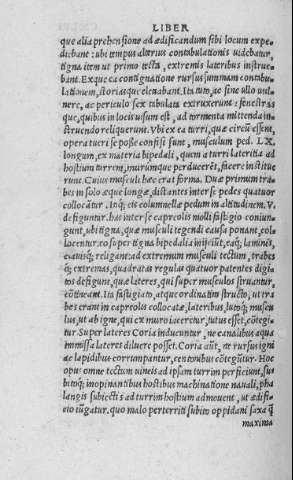 LIBER
que alia prehensione ad ædificandum sibi locum expe
diebant: ubi tempus alterius contabulationis uidebatur,
tigna item ut primo tecta, extremis lateribus instrue-
bant. Exque ea contignatione rursus summam contabu
lationem, storiasque eleuabant. Ita tuto, ac sine ullo uul-
nere, ac periculo sex tabulata extruxerunt: fenestras
que, quibus in locis uisum est, ad tormenta mittenda in
struendo reliquerunt. Vbi ex ea turri, quæ circū essent,
opera tueri se posse confisi sunt, musculum ped. LX.
longum, ex materia bipedali, quem à turri lateritia ad
hostium turrem, murumque perducerēt, facere institue
runt. Cuius musculi hæc erat forma. Duæ primum tra
bes in solo æque longæ, distantes inter se pedes quatuor
collocātur. Inq; eis columnellæ pedum in altitudinem. V.
defiguntur. has inter se capreolis molli fastigio coniun-
gunt, ubi tigna, quæ musculi tegendi causa ponant, col-
locentur. eo super tigna bipedalia iniiciūt, eaq; laminis,
clauisq; religant: ad extremum musculi tectum, trabes
q; extremas, quadratas regulas quatuor patentes digi
tos defigunt, quæ lateres, qui super musculos struantur,
cōtineant. Ita fastigiato, atque ordinatim structo, ut tra
bes erant in capreolis collocatæ, lateribus, lutoq; muscu
lus, ut ab igne, qui ex muro iaceretur, tutus esset, cōtegi-
tur. Super lateres Coria inducuntur, ne canalibus aqua
immissa lateres diluere posset. Coria aūt, ne rursus igni
ac lapidibus corrumpantur, centonibus cōteguntur. Hoc
opus omne tectum uineis ad ipsam turrim perficiunt, su-
bitoq; inopinantibus hostibus machinatione nauali, pha
langis subiectis ad turrim hostium admouent, ut ædifi-
cio iūgatur. quo malo perterriti subito oppidani saxa q̄
maxima